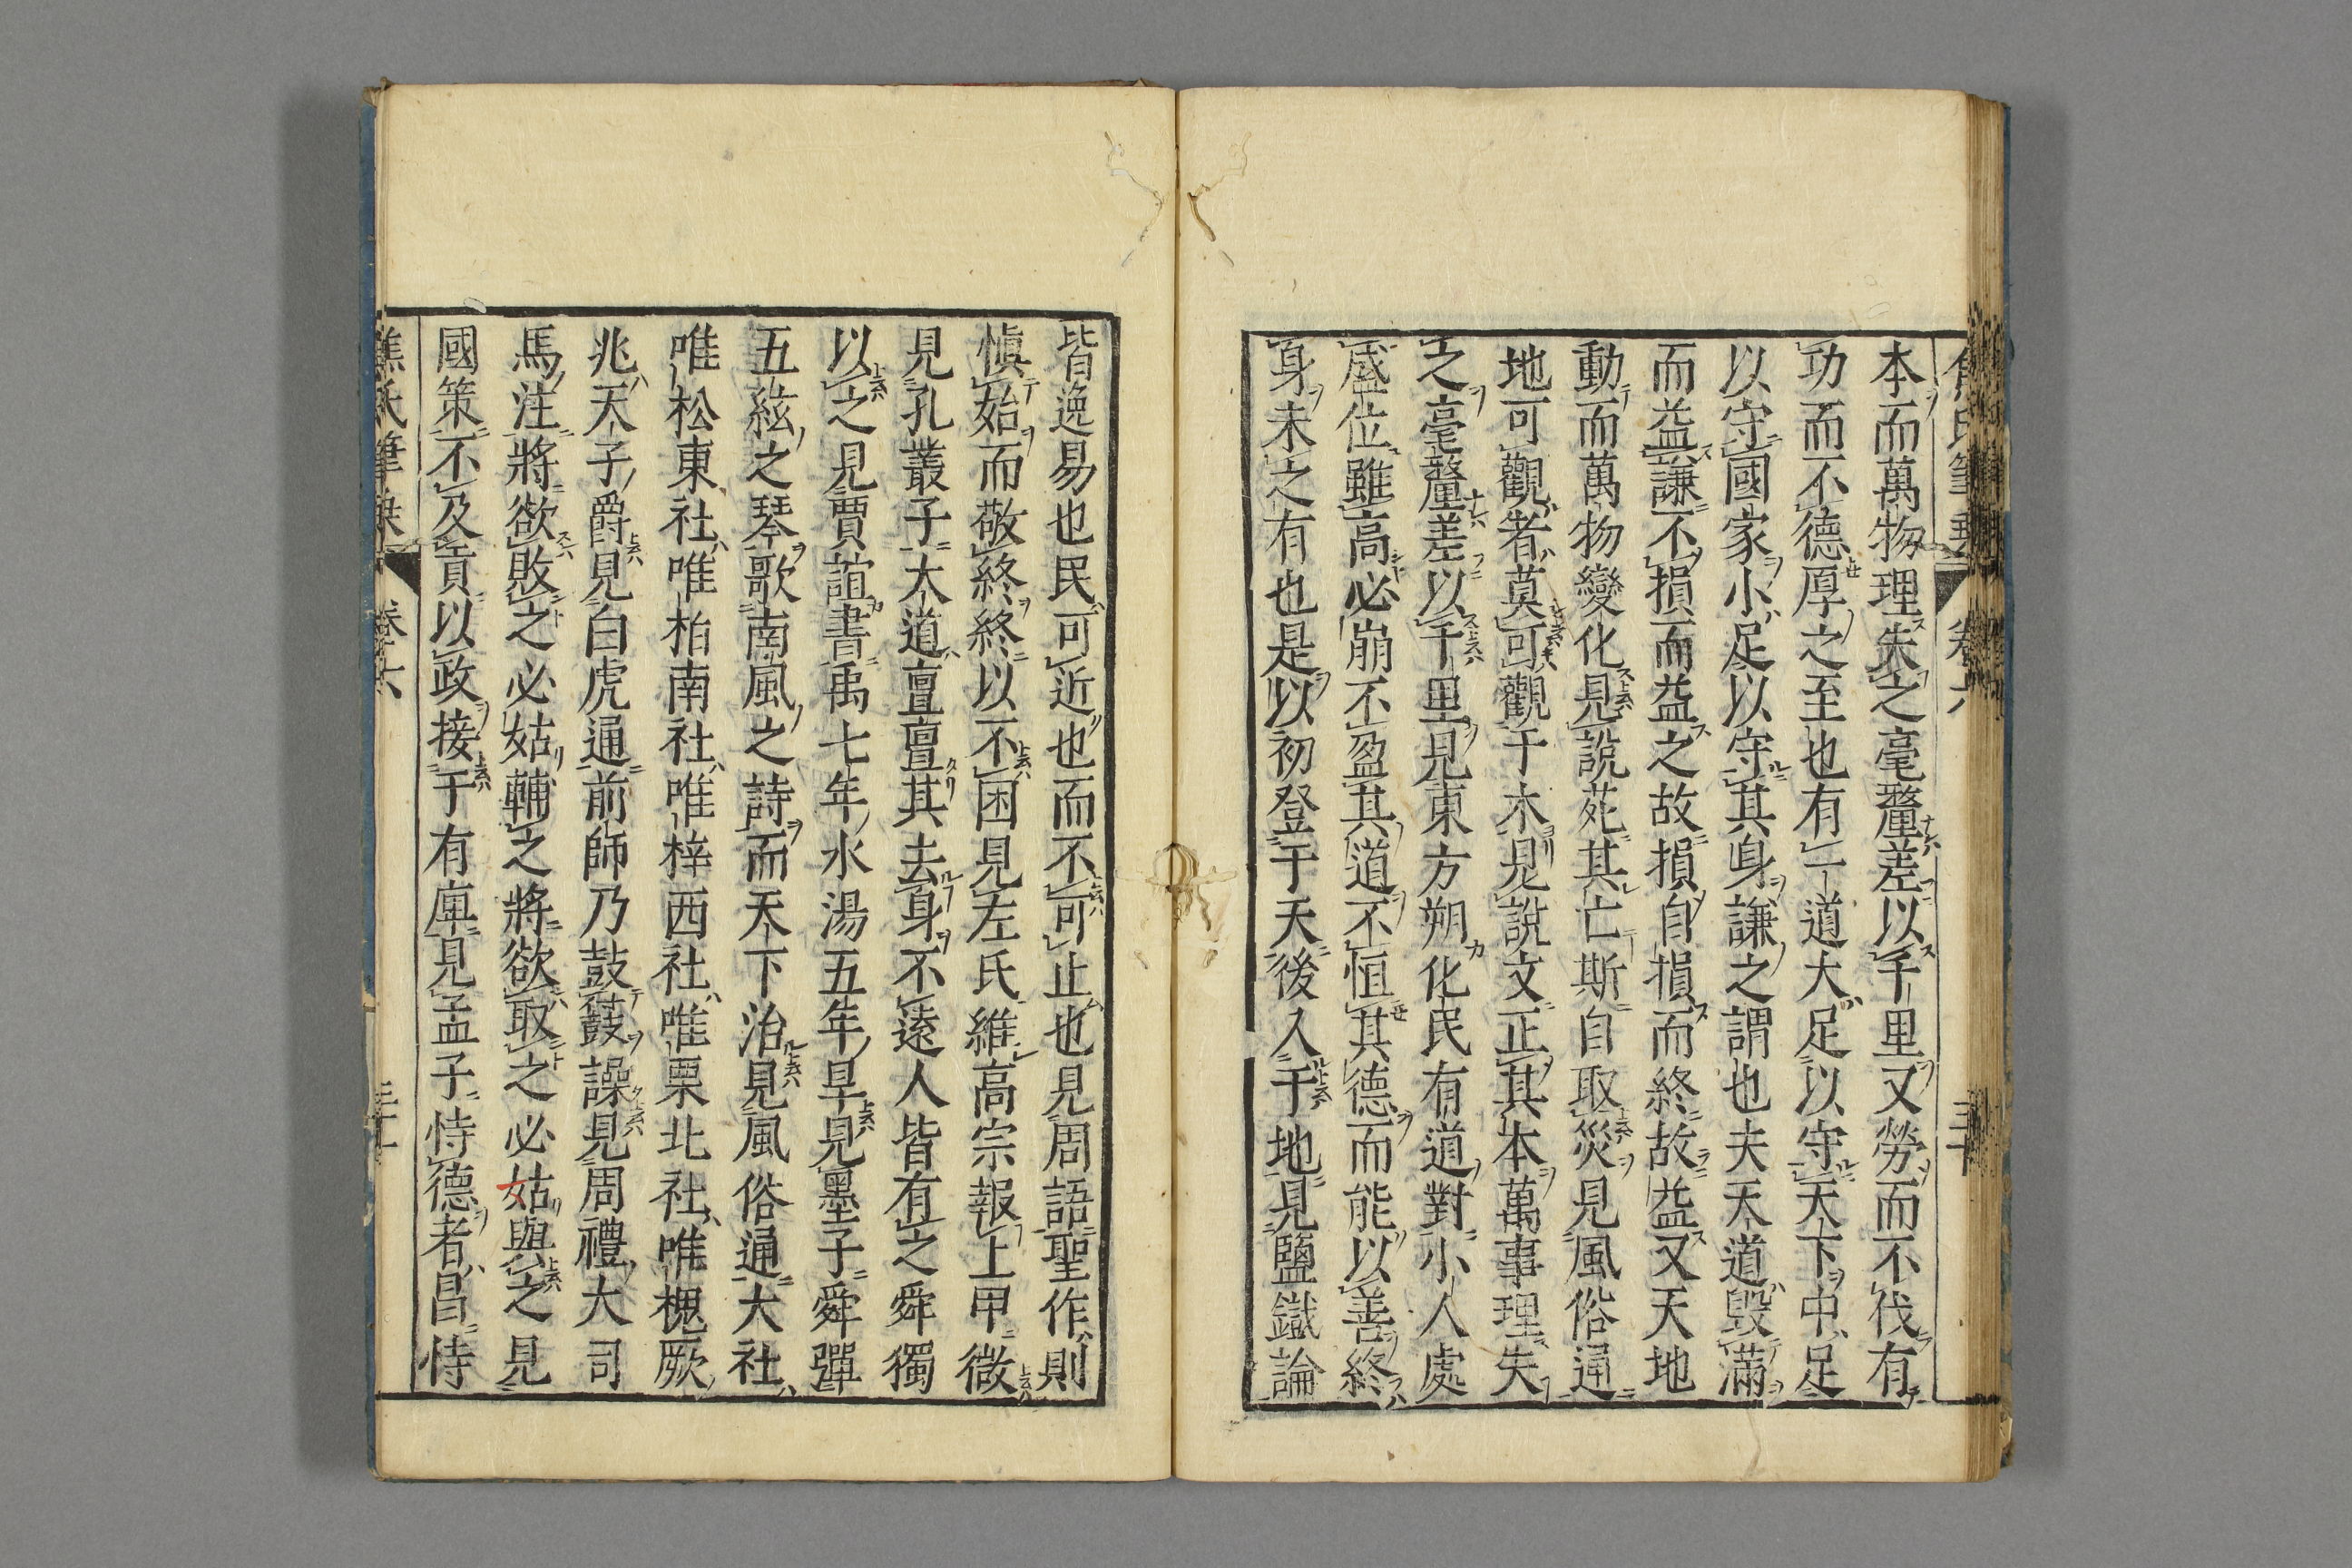 卷六
三十
本而萬物理失之毫釐差以千里又勞而不伐有
功而不德厚之至也有一道大足以守天下中足
以守國家小足以守其身謙之謂也夫天道毀滿
而益謙不損而益之故損自損而終故益又天地
動而萬物變化見說苑其亡斯自取災見風俗通
地可觀者莫可觀于木見說文正其本萬事理失
之毫釐差以千里見東方朔化民有道對小人處
盛位雖高必崩不盈其道不恒其德而能以善終
身未之有也是以初登于天後入于地見鹽鐵論
皆逸易也民可近也而不可止也見周語聖作則
愼始而敬終終以不困見左氏維高宗報上甲微
見孔叢子大道亶亶其去身不遠人皆有之舜獨
以之見賈誼書禹七年水湯五年旱見墨子舜彈
五絃之琴歌南風之詩而天下治見風俗通大社
唯松東社唯柏南社唯梓西社唯栗北社唯槐厥
兆天子爵見白虎通前師乃鼓鼖譟見周禮大司
馬注將欲敗之必姑輔之將欲取之必姑與之見
國策不及貢以政接于有庳見孟子恃德者昌恃
焦氏筆乘
卷六
三十一